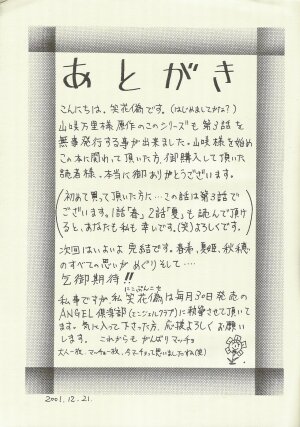 あとがき
こんにちは。笑花偽です。(はじめましてかな?)
山咲万里様、原作のこのシリーズも第3話を
無事発行する事が出来ました。山咲様を始め
この本に関わって頂いた方、御購入して頂いた
読者様、本当に御ありがとうございます。
初めて買って頂いた方に…この話は第3話で
ございます。1話「春」、2話「夏」も読んで頂け
ると、あなたも私も幸せです。(笑)よろしくです。
次回はいよいよ完結です。春希、夏姫、秋穂
のすべての思いがめぐりそして…
乞御期待!!
にこぷんニセ
私事ですが、私笑花偽は毎月30日発売の
ANGEL倶楽部(エンジェルクラブ)に執筆させて頂いて
ます。気に入って下さった方、応援よろしくお願い
します。これからもがんばりマッチョ
大人一故、マッチョ一故、今マチョって思いましたね(笑)
2001.12.21.